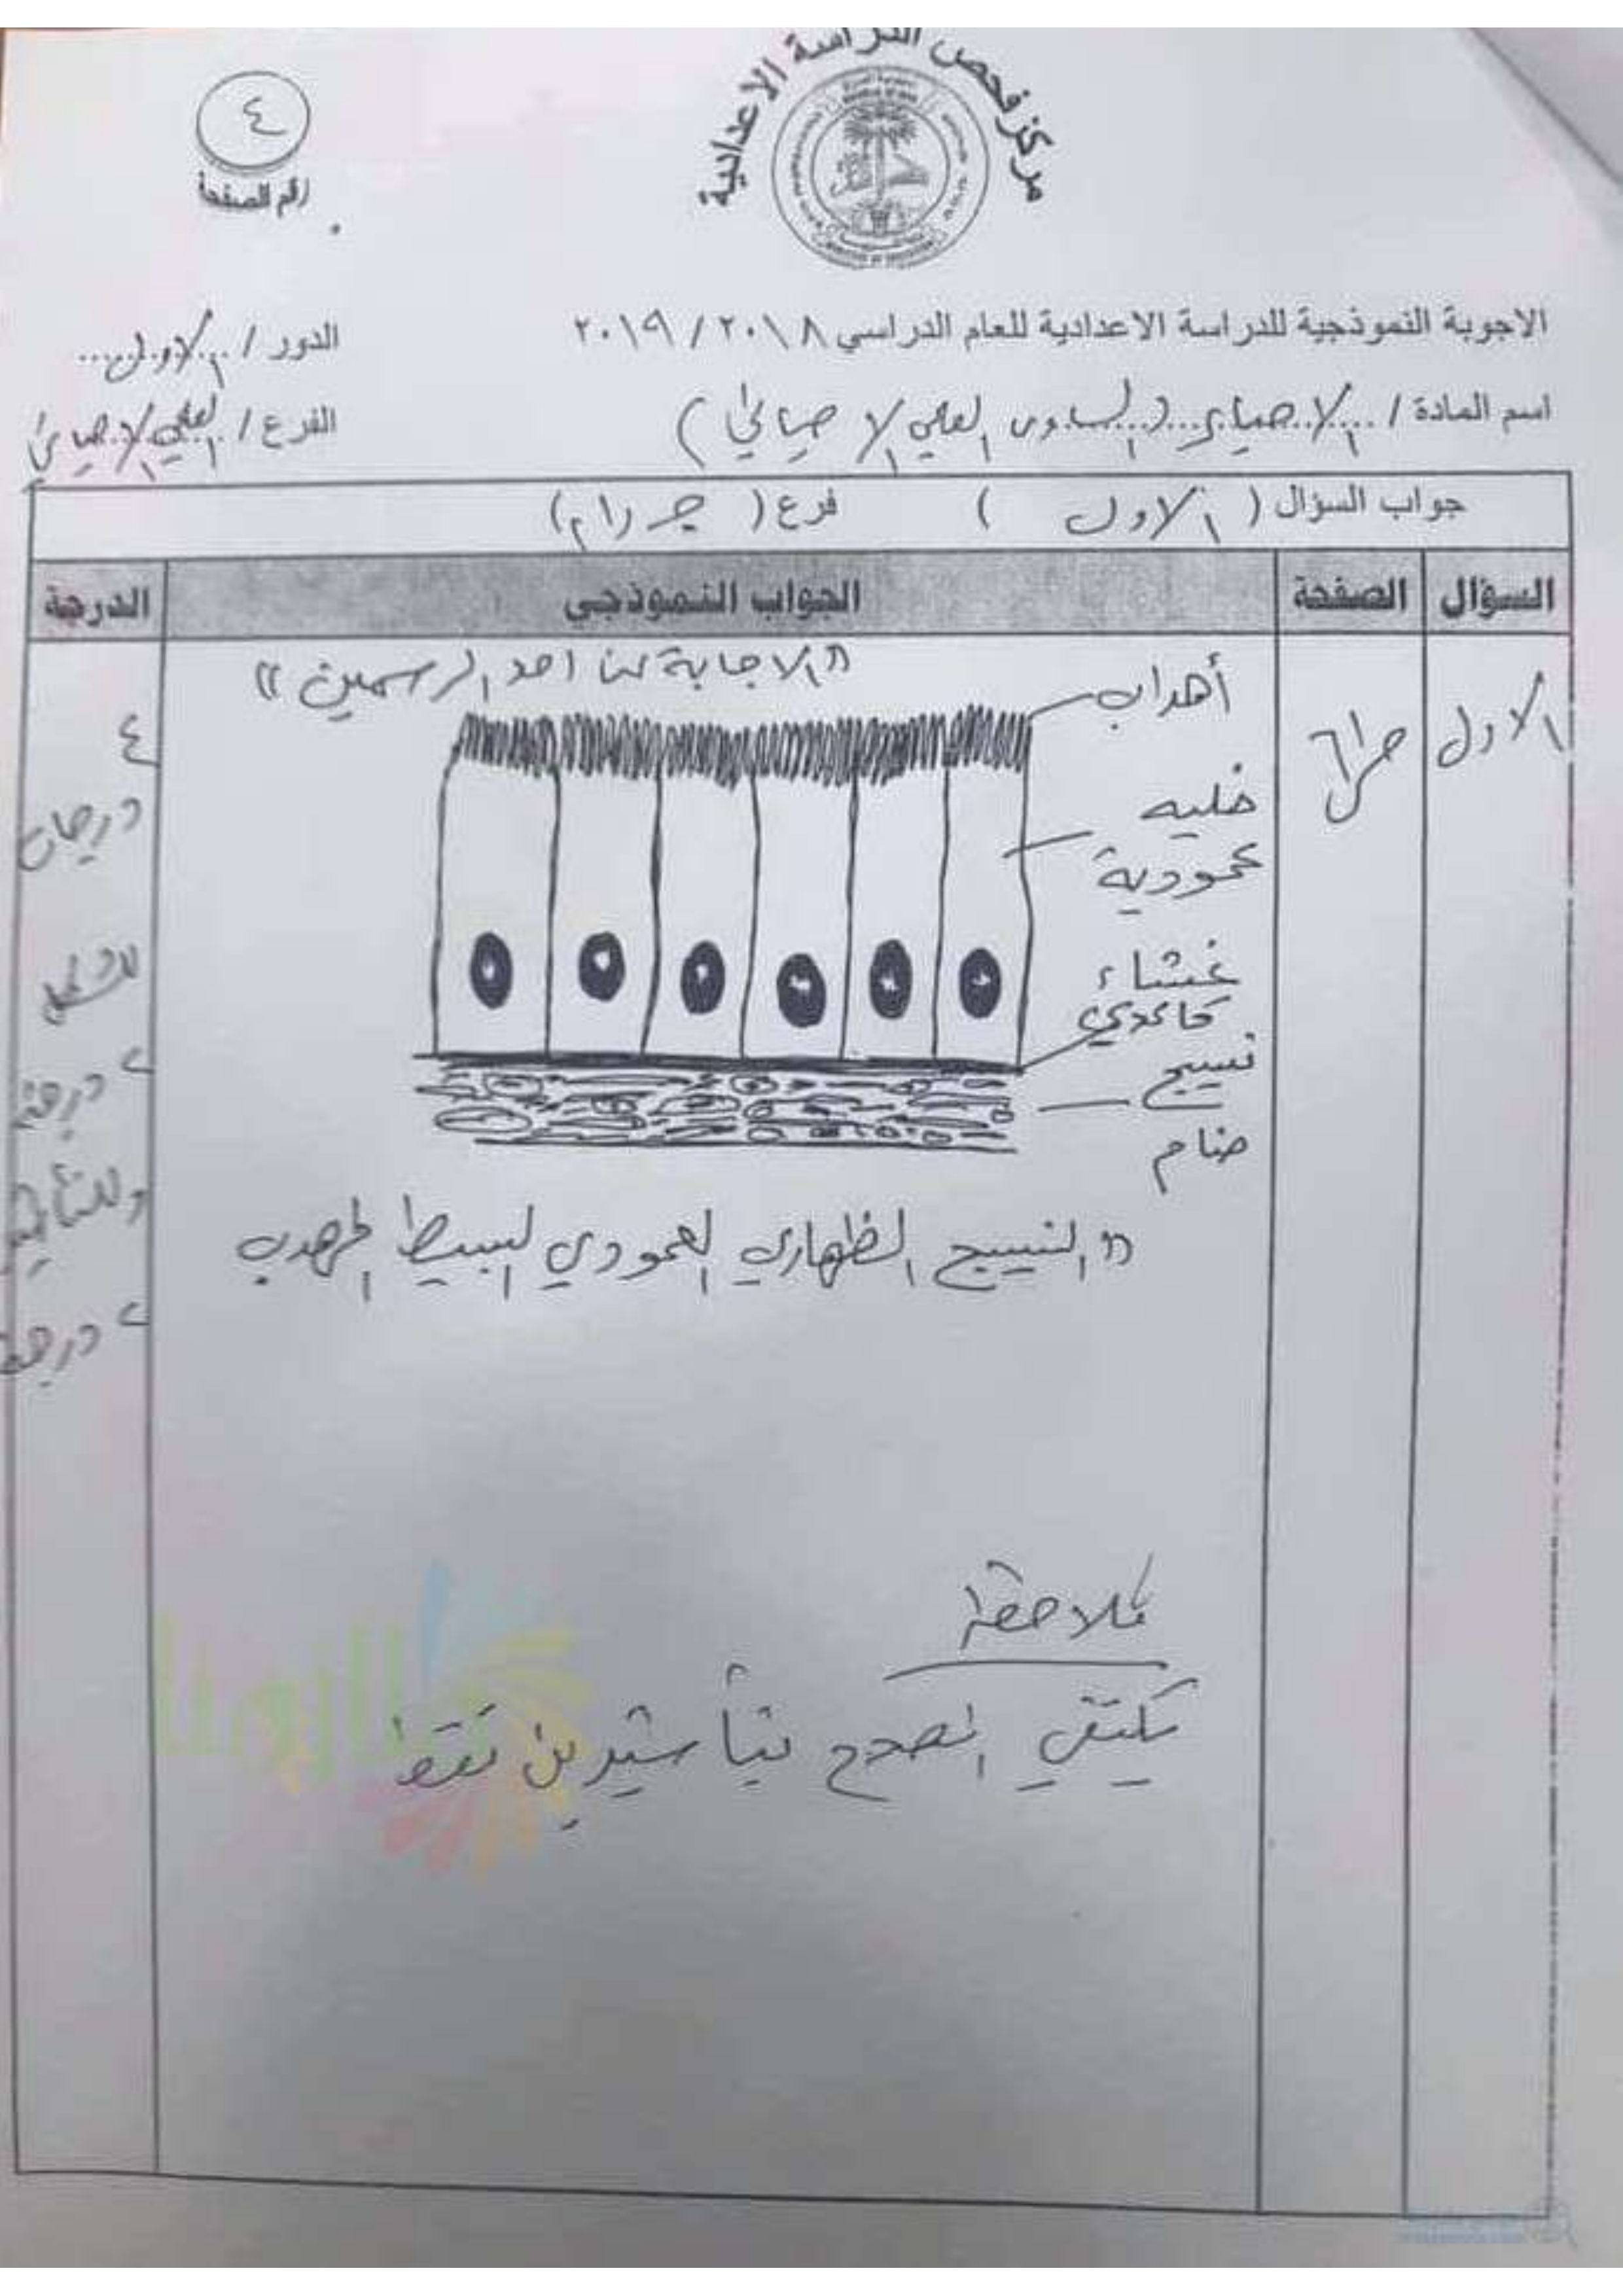 مركز فحص الدراسة الاعدادية
٤
رقم الصفحة
الاجوبة النموذجية للدراسة الاعدادية للعام الدراسي ٢٠١٨ / ٢٠١٩
الدور / الاول
اسم المادة / الاحياء
العلمي الاحيائي )
الفرع / العلمي الاحيائي
جواب السؤال ( الاول ) فرع (
السؤال
الصفحة
الجواب النموذجي
الدرجة
الاول
« الاجابة عن احد الرسمين »
أهداب
خليه
عمودية
غشاء
قاعدي
نسيج
ضام
« النسيج الظهاري العمودي البسيط المهدب
٤
درجات
للشكل
٢ درجة
وللتأشير
٢ درجة
ملاحظة
يكتفي المصحح بتأشيرين فقط